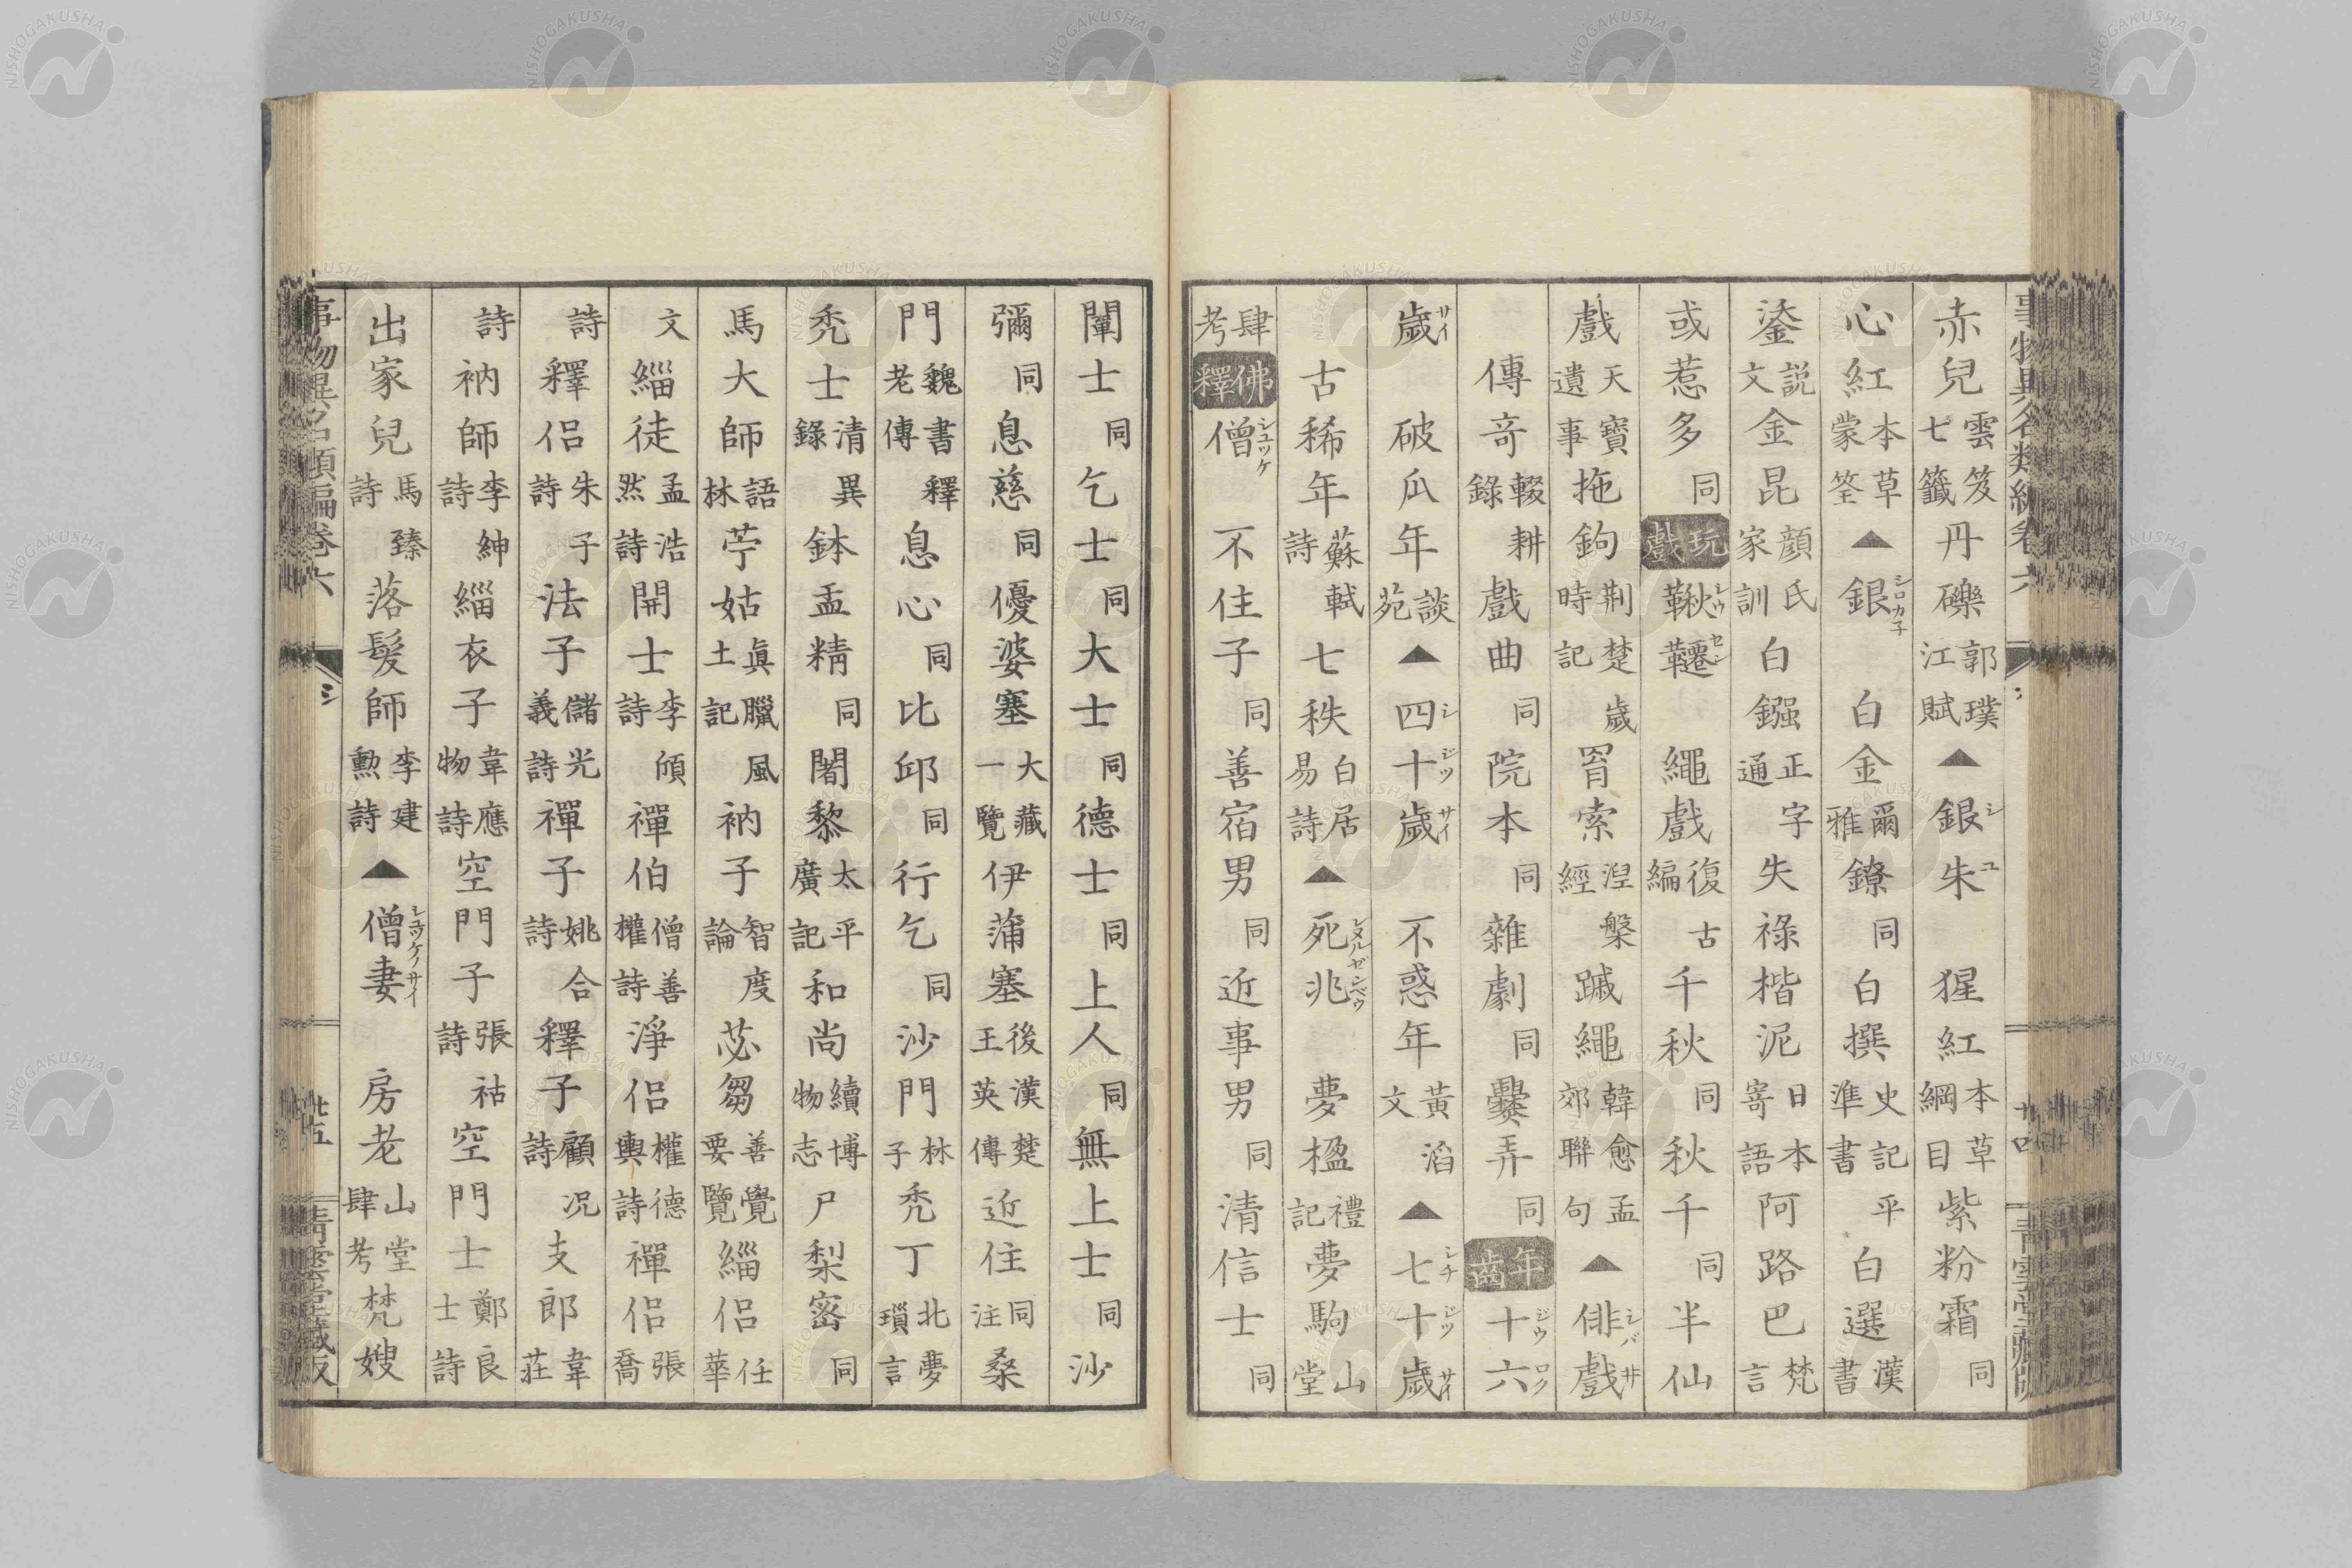 赤兒雲笈七籤丹礫郭璞江賦▲銀朱シユ猩紅本草綱目紫粉霜同
心紅本草蒙筌▲銀シロカ子白金爾雅鐐同白撰史記平準書白選漢書
鋈説文金昆顔氏家訓白鏹正字通失祿楷泥日本寄語阿路巴梵言
或惹多同玩戲鞦韆シウセン繩戲復古編千秋同秋千同半仙
戲天寶遺事拖鉤荆楚歲時記罥索湼槃經䠞繩韓愈孟郊聯句▲俳戲シバ井
傳奇輟耕錄戲曲同院本同雜劇同爨弄同年齒十六ジウロク
歲サイ破瓜年談苑▲四十歲シジツサイ不惑年黃滔文▲七十歲シチジツサイ
古稀年蘇軾詩七秩白居易詩▲死兆シヌルゼンベウ夢楹禮記夢駒山堂
肆考佛釋僧シユツケ不住子同善宿男同近事男同清信士同
事物異名類編卷六
廿四
青雲堂藏版
闡士同乞士同大士同德士同上人同無上士同沙
彌同息慈同優婆塞大藏一覽伊蒲塞後漢楚王英傳近住同注桑
門魏書釋老傳息心同比邱同行乞同沙門林子禿丁北夢瑣言
禿士清異錄鉢盂精同闍黎太平廣記和尚續博物志尸梨密同
馬大師語林苧姑眞臘風土記衲子智度論苾芻善覺要覽緇侶任華
文緇徒孟浩然詩開士李頎詩禪伯僧善權詩淨侶權德輿詩禪侶張喬
詩釋侶朱子詩法子儲光義詩禪子姚合詩釋子顧况詩支郎韋莊
詩衲師李紳詩緇衣子韋應物詩空門子張祜詩空門士鄭良士詩
出家兒馬臻詩落髮師李建勲詩▲僧妻シユツケノサイ房老山堂肆考梵嫂
事物異名類編卷六
廿五
青雲堂藏版